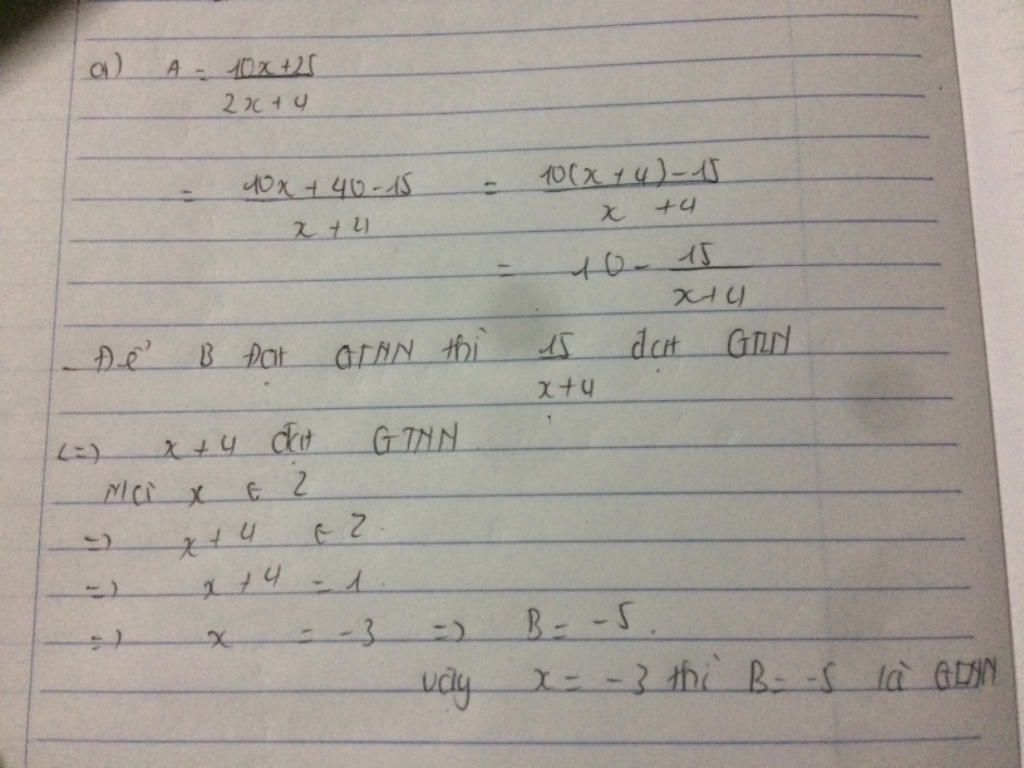 a) A = 10x+25 / 2x+4
= 10x + 40 - 15 / x + 4 = 10(x + 4) - 15 / x + 4
= 10 - 15 / x+4
- Để B Đạt GTNN thì 15 / x+4 đạt GTLN
<=> x + 4 đạt GTNN
Mà x ∈ Z
=> x + 4 ∈ Z
=> x + 4 = 1
=> x = -3 => B = -5.
vậy x = -3 thì B = -5 là GTNN